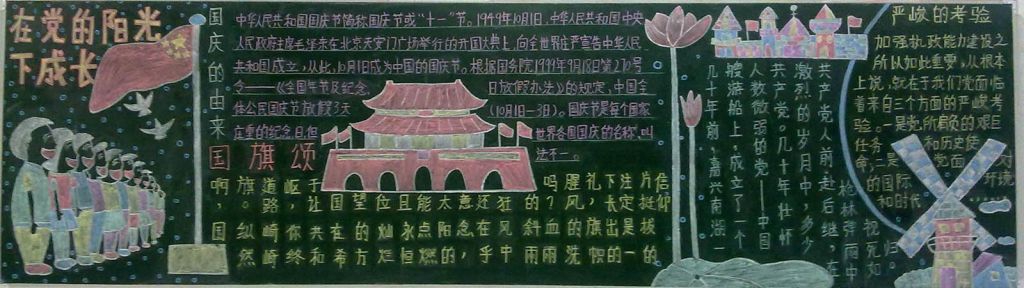 在党的阳光
下成长
国庆的由来
中华人民共和国国庆节简称国庆节或"十一"节。1949年10月1日,中华人民共和国中央
人民政府主席毛泽东在北京天安门广场举行的开国大典上,向全世界庄严宣告中华人民
共和国成立,从此,10月1日成为中国的国庆节。根据国务院1999年9月18日第270号
令——《全国年节及纪念日放假办法》的规定,中国全
体公民国庆节放假3天(10月1日-3日)。国庆节是每个国家
重要的纪念日,但世界各国国庆的名称,叫
法不一。
国旗颂
啊,国
旗。纵然
道路崎
岖,你终
于让共和
国在希
望的方
位灿烂
且永恒
能点燃
太阳的
意念,
几十年前,嘉兴南湖一
艘游船上,成立了一个
人数微弱的党——中国
共产党。几十年壮怀
激烈的岁月中,多少
共产党人前赴后继,在
枪林弹雨中
视死如归
严峻的考验
加强执政能力建设之
所以如此重要,从根本
上说,就在于我们党面临
着来自三个方面的严峻考
验。一是党所肩负的艰巨
任务和历史使
命,二是党面对
的国际环境
和时代